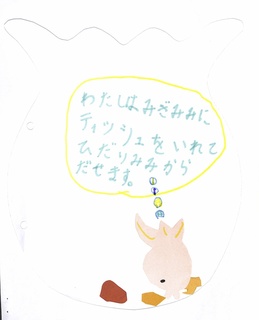 わたしは、みぎみみに
ティッシュをいれて
ひだりみみから
だせます。